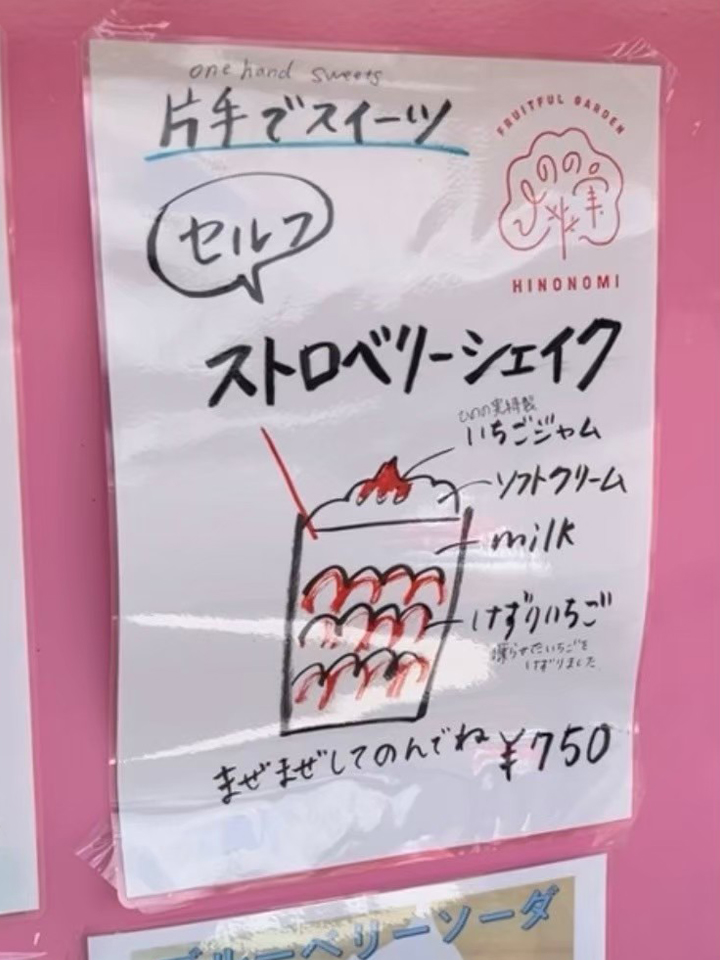 one hand sweets
片手でスイーツ
FRUITFUL GARDEN
ひのの実
HINONOMI
セルフ
ストロベリーシェイク
ひのの実特製
いちごジャム
ソフトクリーム
milk
けずりいちご
凍らせたいちごを
けずりました
まぜまぜしてのんでね ¥750
ブルーベリーソーダ